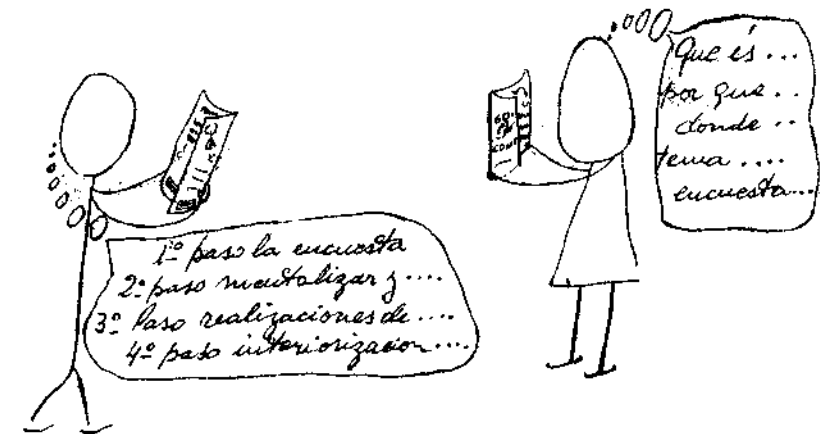 1º paso la encuesta
2º paso mentalizar y ....
3º Paso realizaciones de ....
4º paso interiorizacion ....
Que és ...
por que ..
donde ..
tema ....
encuesta ...